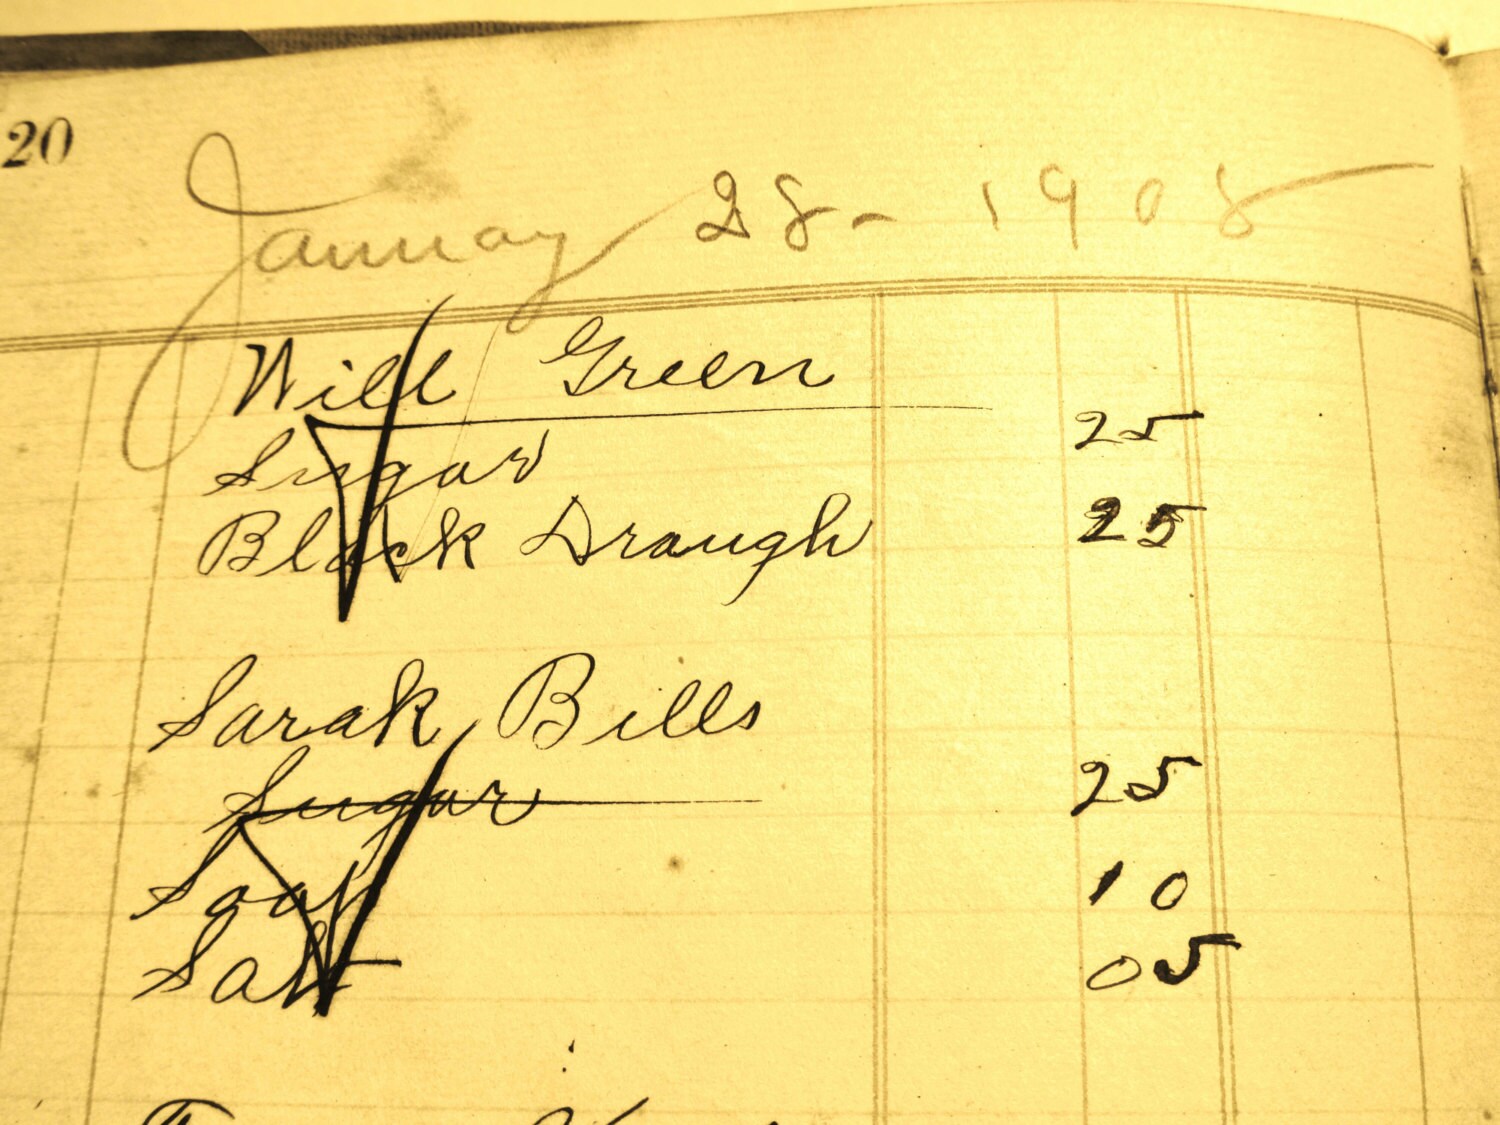 20
January 28- 1908
Will Green
Sugar 25
Black Draugh 25
Sarah Bills
Sugar 25
Soap 10
Salt 05